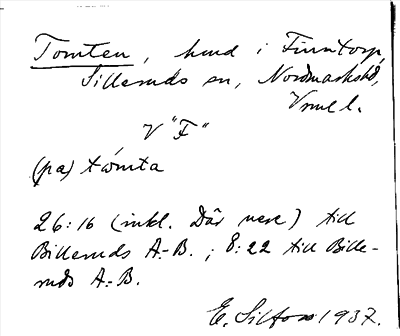 Tomten, hmd i Finntorp,
Silleruds sn, Nordmarks hd,
Vrml l.
V "F"
(pa) tomta
26:16 (inkl. Där nere) till
Billeruds A.-B.; 8:22 till Bille-
ruds A.-B.
E. 1937.